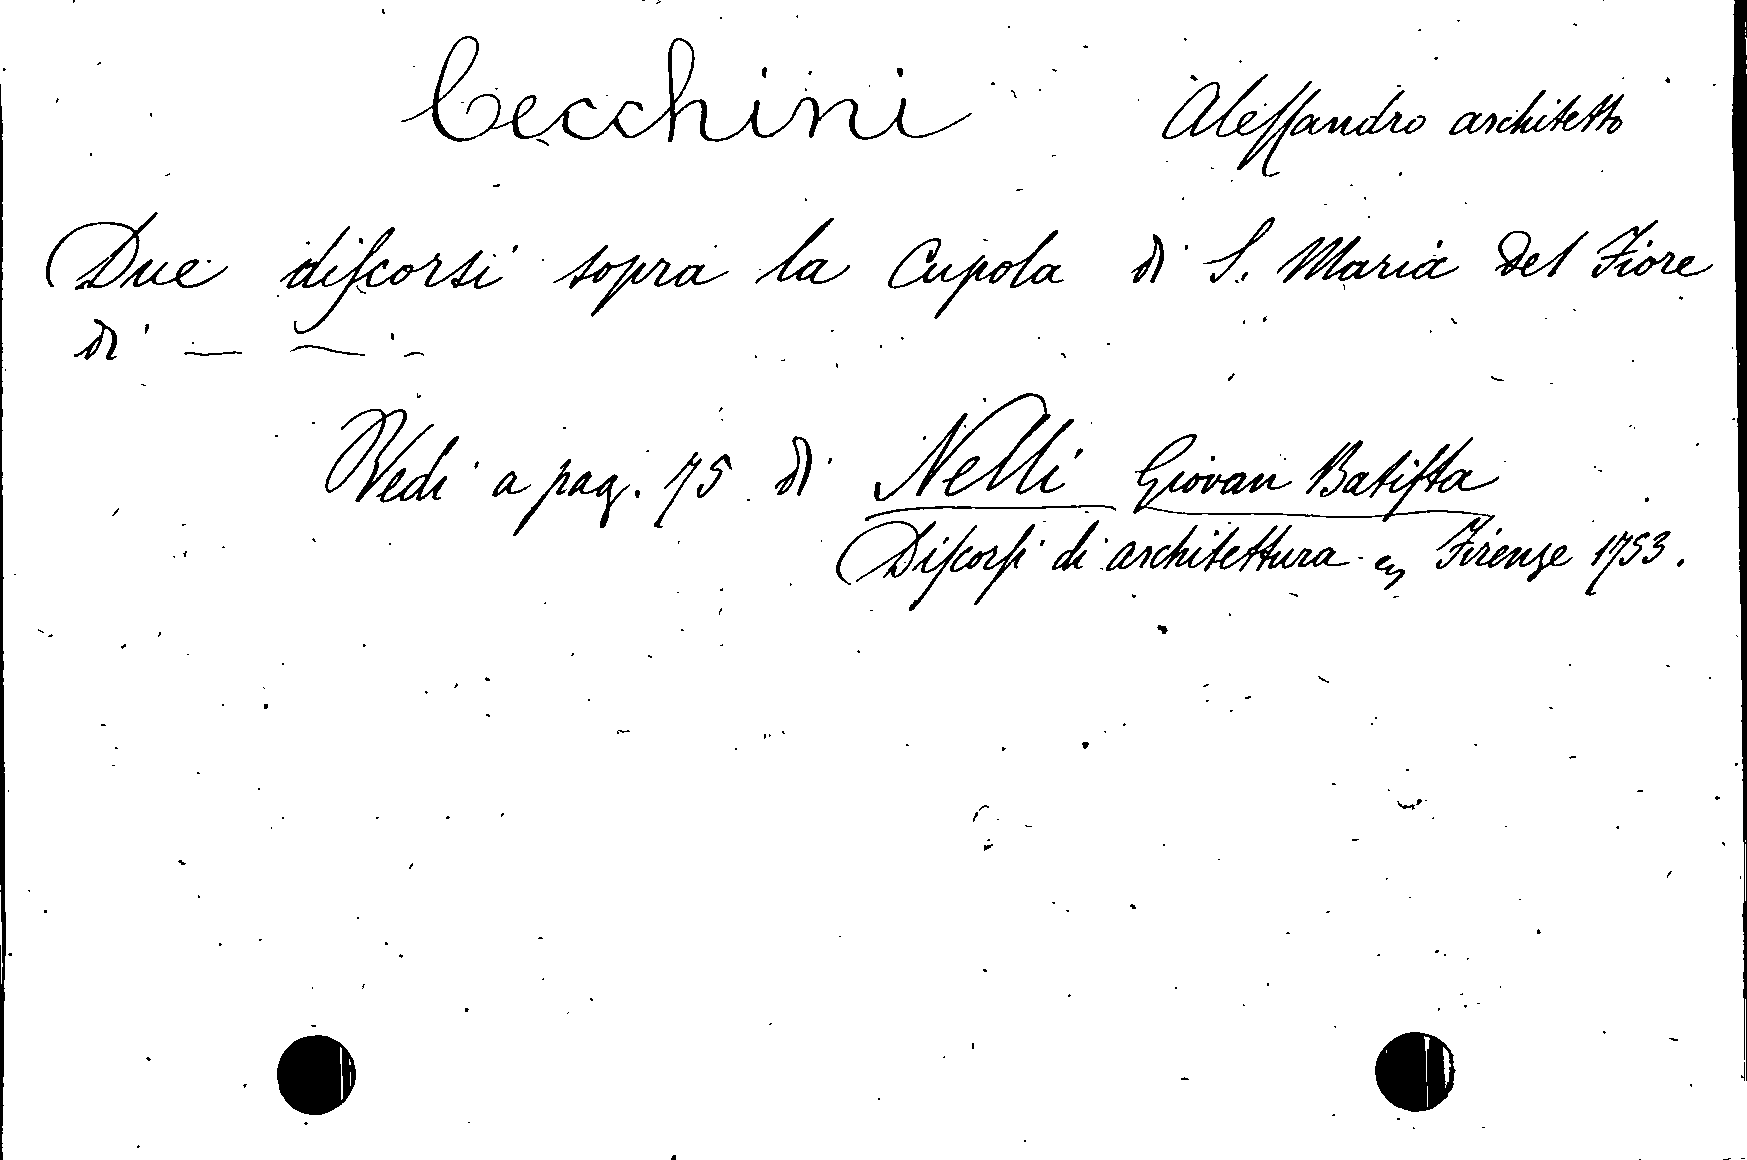 Cecchini Aleſſandro architetto
Due diſcorsi sopra la Cupola di S. Maria del Fiore
di — — -
Vedi a pag. 75 di Nelli Giovan Batiſta
Diſcorſi di architettura Firenze 1753.